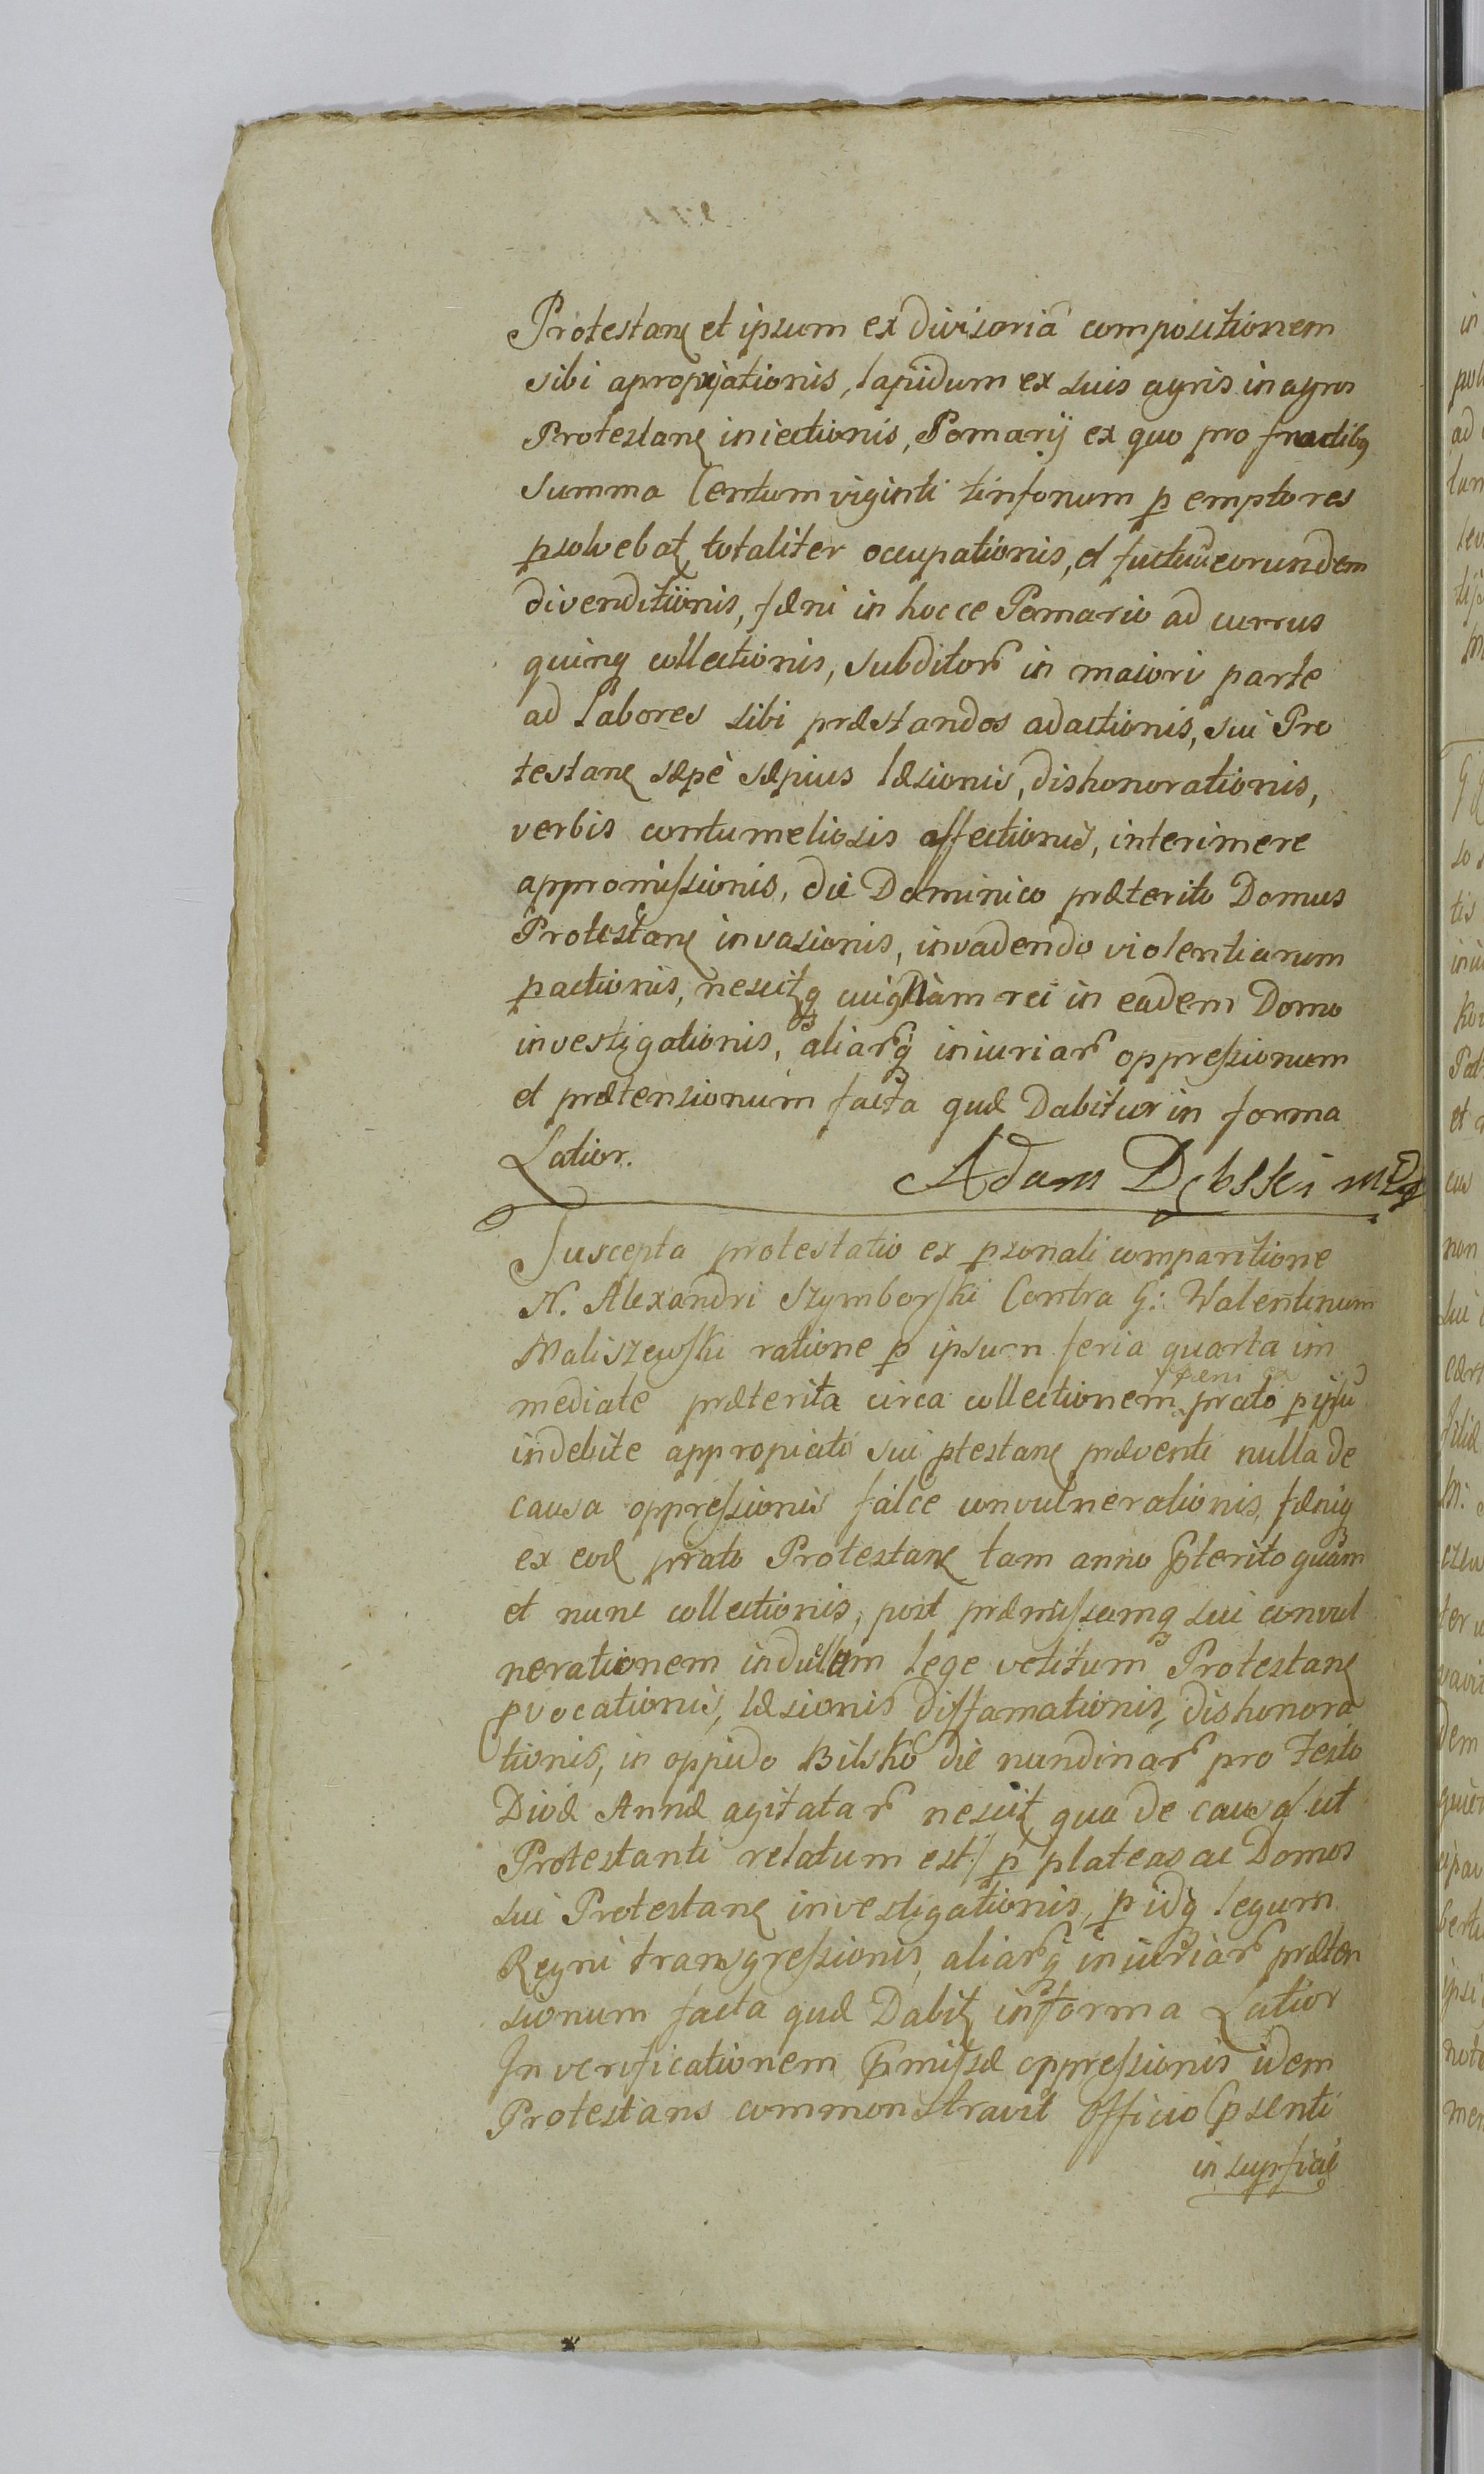 Protestanę et ipsum ex divisoria compositionem
sibi apropijationis, lapidum ex suis agris in agros
Protestanę iniectionis, Pomarij ex quo pro fructibq
summa Centum viginti tinfonum p emptores
psolvebatę totaliter occupationis, et fuctuũ eorundem
divenditionis, fæni in hocce Pomario ad currus
quinq collectionis, subditorũ in maiori parte
ad Labores sibi præstandos adactionis, sui Pro
testanę sæpè sæpius læsionis, dishonorationis,
verbis contumeliosis affectionis, interimere
appromissionis, die Dominico præterito Domus
Protestanę invasionis, invadendo violentiarum
pactionis, nescitę cuiq̃ nam rei in eadem Domo
investigationis, aliarq̃ iniuriar̃ oppressionum
et prætensionum facta quæ Dabitur in forma
Latior.
Adam Dębski mp
Suscepta protestatio ex psonali comparitione
N. Alexandri Szymborski Contra G: Walentinum
Maliszewski ratione p ipsum feria quarta im
mediate præterita circa collectionem fæni ex prato p ipsũ
indebite appropiato sui ptestanę præventi nulla de
causa oppressionis falce convulnerationis, fæniq
ex eod prato Protestanę tam anno pterito quam
et nunc collectionis, post præmissamq sui convul
nerationem in duellum lege vetitum Protestanę
pvocationis, læsionis diffamationis, dishonora
tionis, in oppido Bilsko die nundinar̃ pro Festo
Divæ Annæ agitatar̃ nescitę qua de causa /ut
Protestanti relatum est/ p plateas ac Domos
sui Protestanę investigationis, p idq legum
Regni transgressionis, aliarq̃ iniuriar̃ præten
sionum facta quæ Dabitę in forma Latior
In verificationem pmissæ oppressionis idem
Protestans commonstravit Officio psenti
in supficie